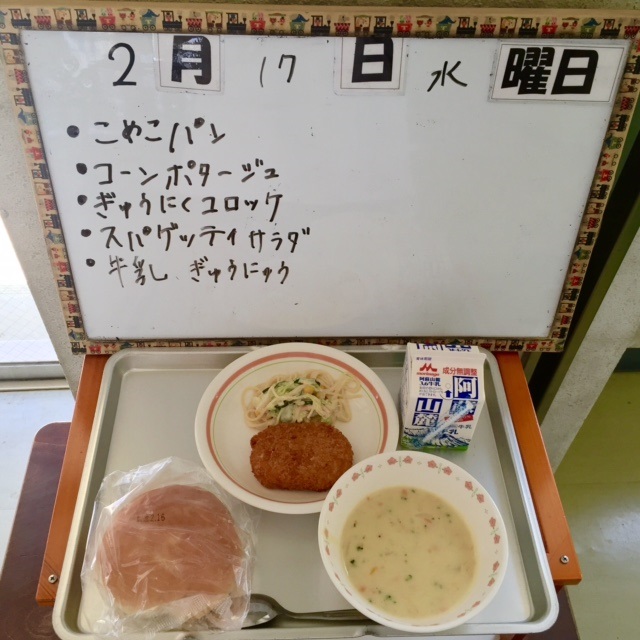 2月17日 水曜日
・こめこパン
・コーンポタージュ
・ぎゅうにくコロッケ
・スパゲッティサラダ
・牛乳、ぎゅうにゅう
森永
成分無調整